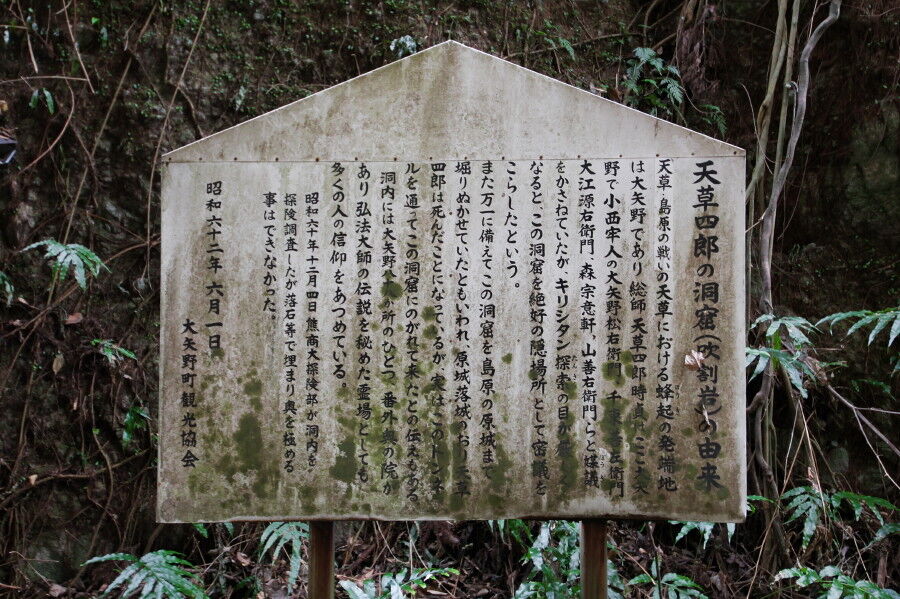 天草四郎の洞窟(吹割岩)の由来
天草・島原の戦いの天草における蜂起の発端地
は大矢野であり総師 天草四郎時貞がここ大矢
野で小西牢人の大矢野松右衛門、千束善左衛門
大江源右衛門、森宗意軒，山善右衛門らと謀議
をかさねていたが、キリシタン探索の目が
なると、この洞窟を絶好の隠場所として密議を
こらしたという。
また万一に備えてこの洞窟を島原の原城まで
堀りぬかせていたともいわれ、原城落城のおり
四郎は死んだことになっているが、実はこのトンネ
ルを通ってこの洞窟にのがれて来たとの伝えもある
洞内には大矢野八十八か所のひとつ、番外奥の院が
あり弘法大師の伝説を秘めた霊場としても
多くの人の信仰をあつめている。
昭和六十年十二月四日 熊商大探険部が洞内を
探険調査したが落石等で埋まり奥を極める
事はできなかった。
昭和六十二年 六月 一日
大矢野町観光協会